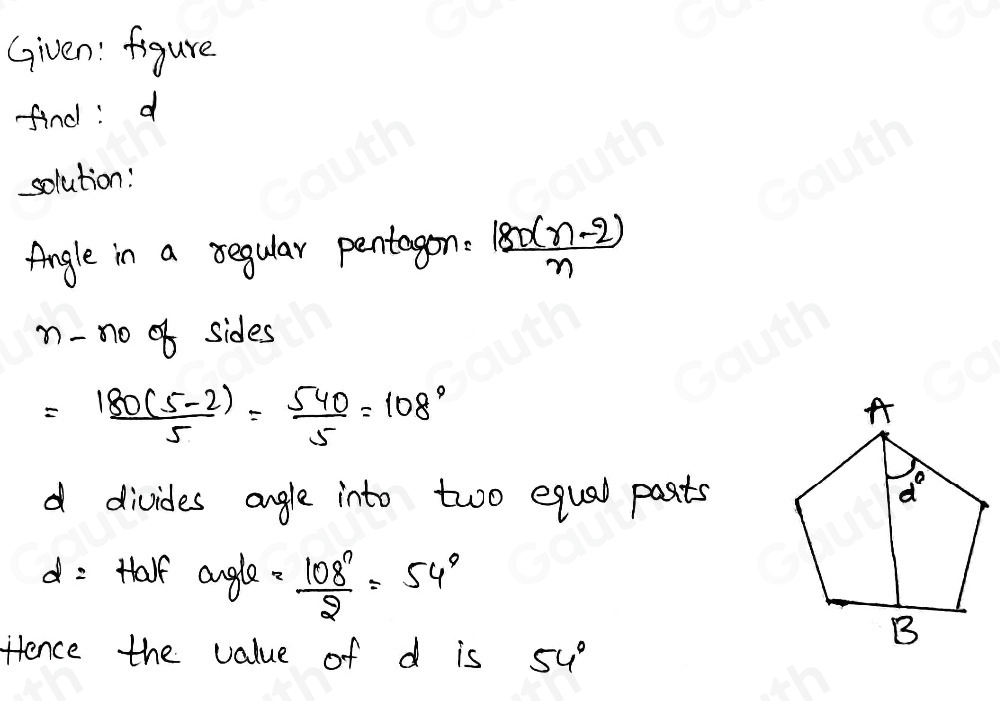 Given: figure
find: d
solution:
Angle in a regular pentagon = 180(n-2)/n
n - no of sides
= 180(5-2)/5 = 540/5 = 108°
d divides angle into two equal parts
d = Half angle = 108°/2 = 54°
Hence the value of d is 54°
A
d°
B
Gauth